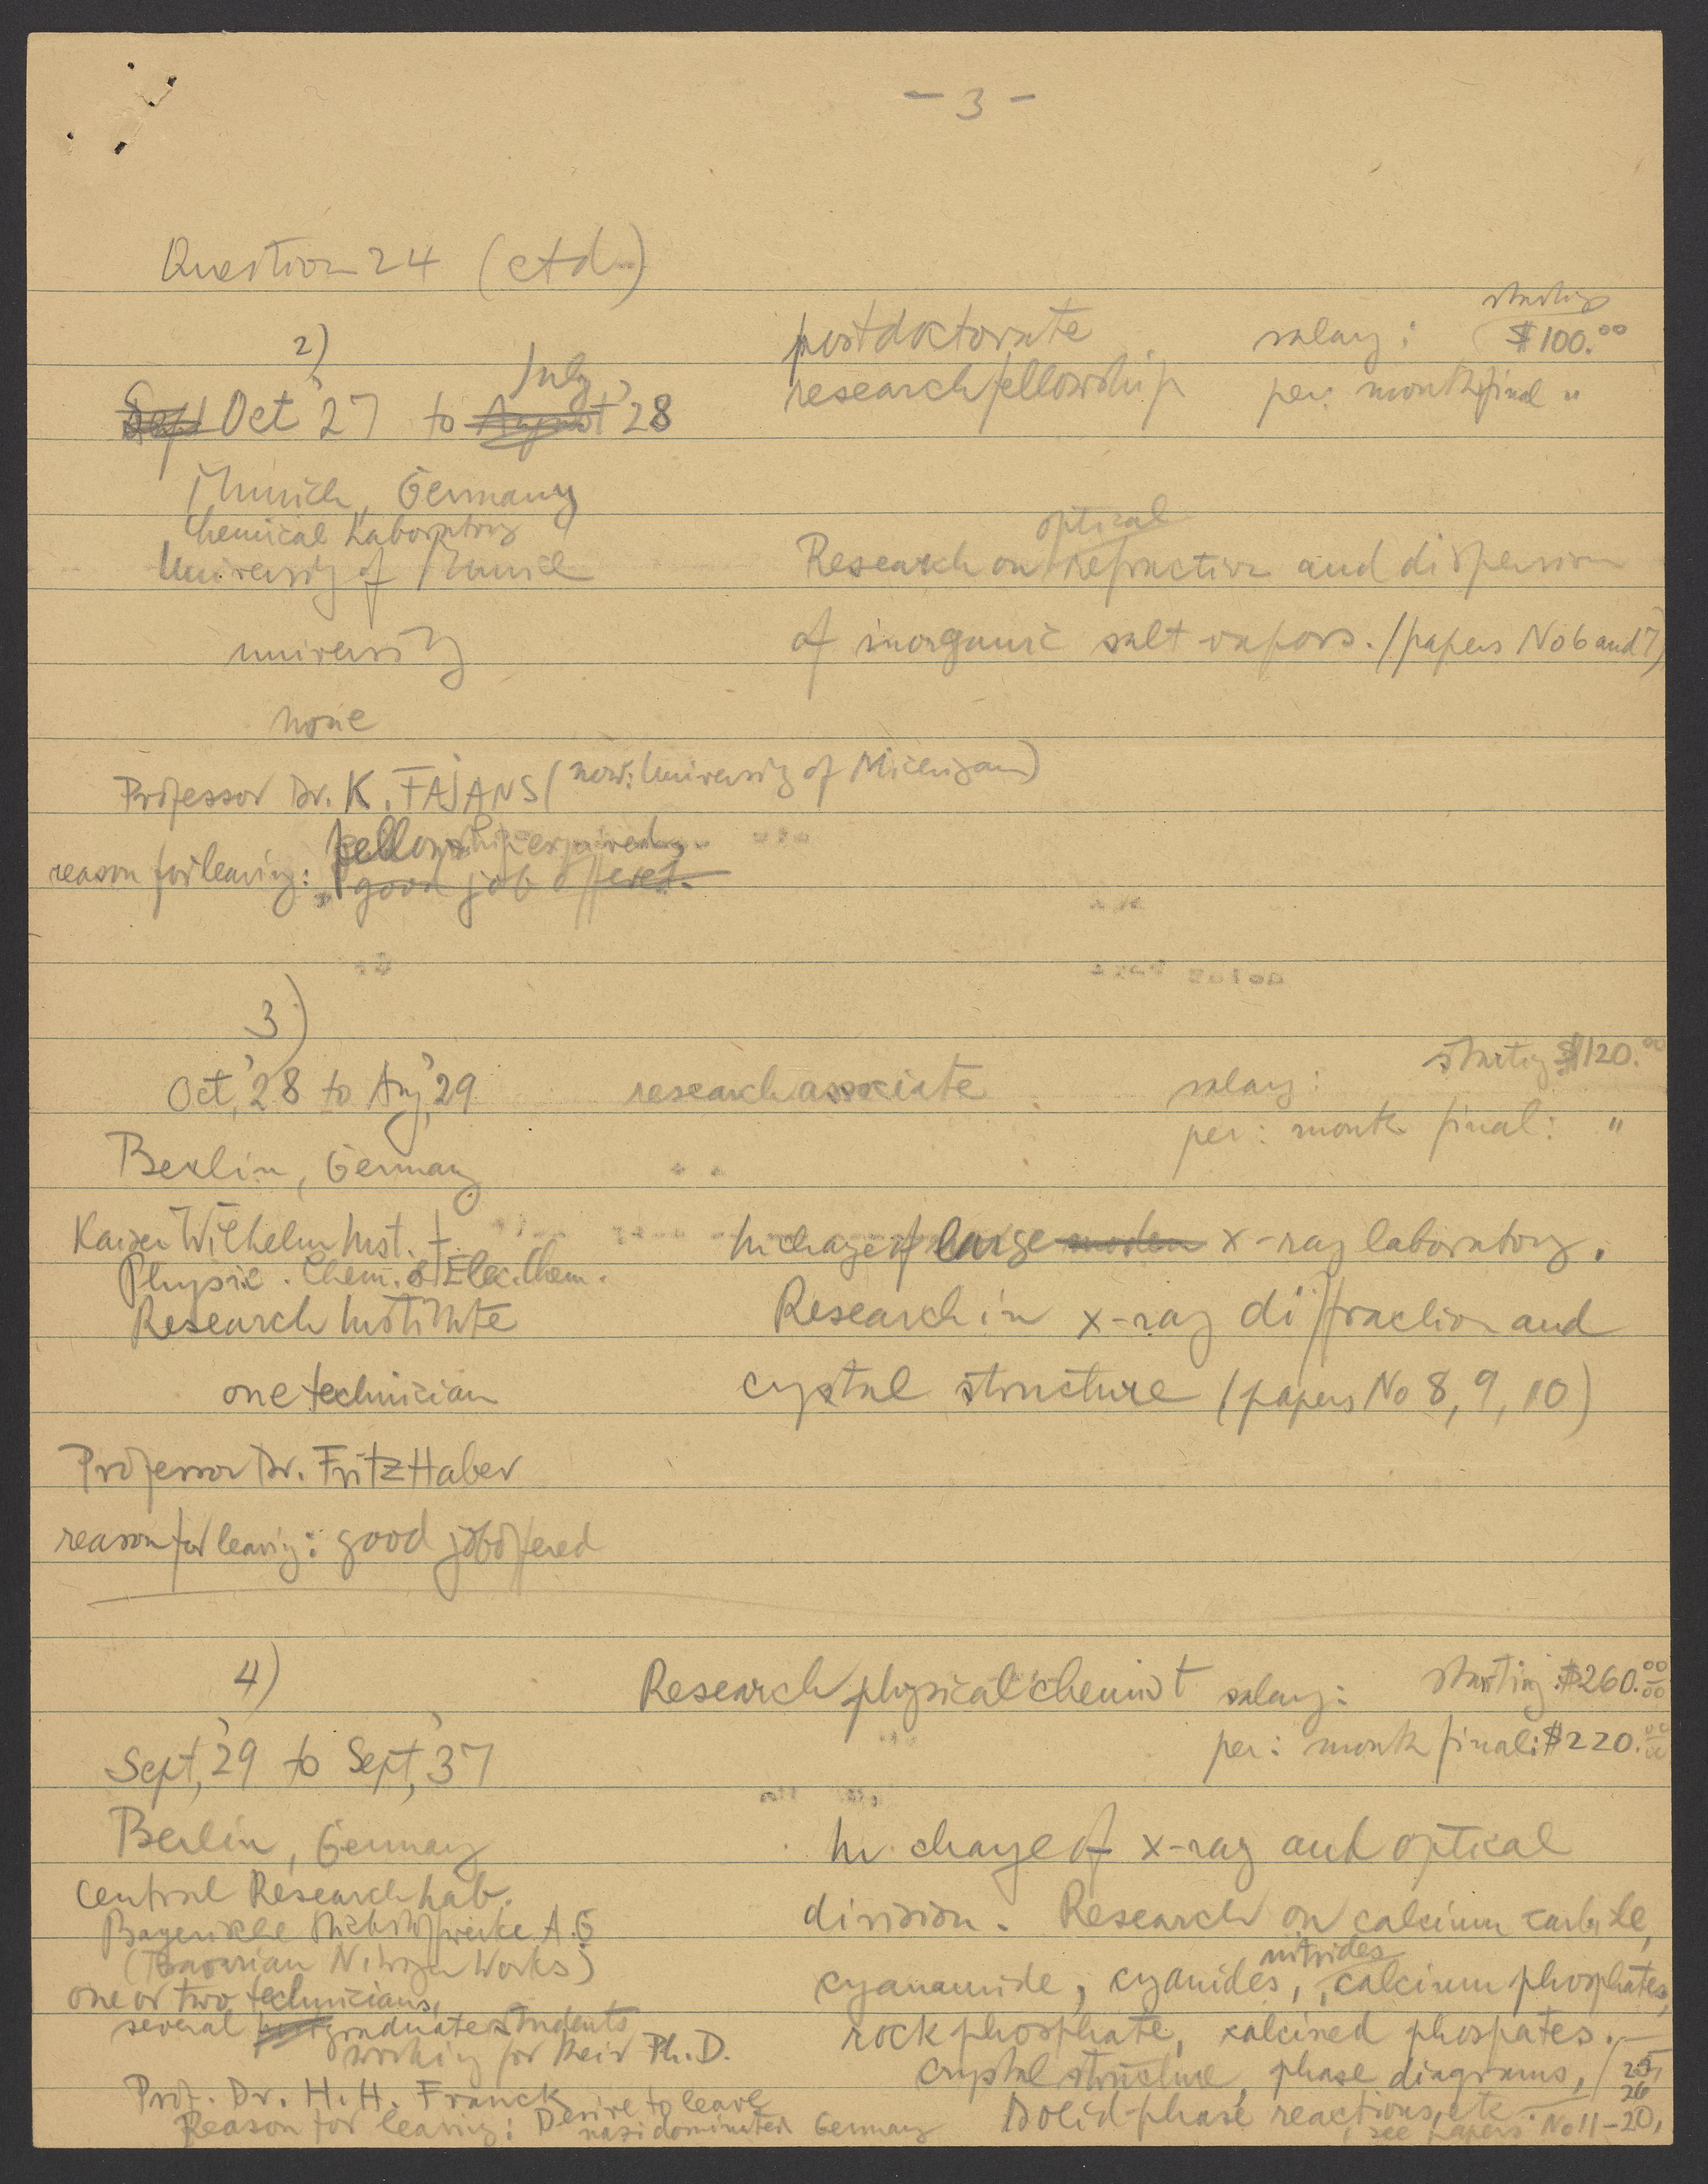 - 3 -
Question 24 (ctd.)
2)
postdoktorate salary: starting $100.00
Sept Oct '27 to August July '28 research fellowship per: month final "
Munich, Germany
Chemical Laboratory
University of Munich
Research on optical refraction and dispersion
university of inorganic salt vapors. (papers No 6 and 7)
none
Professor Dr. K. FAJANS (now: University of Michigan)
reason for leaving: fellowship expired,
good job offered.
3)
Oct, '28 to Aug, '29 research associate salary: starting $120.00
per: month final: "
Berlin, Germany
Kaiser Wilhelm Inst. f. In charge of large modern x-ray laboratory.
Physic. Chem. & Elec. Chem.
Research Institute Research in x-ray diffraction and
one technician crystal structure (papers No 8, 9, 10)
Professor Dr. Fritz Haber
reason for leaving: good job offered
4)
Research physical chemist salary: starting: $260.00
Sept, '29 to Sept, '37 per: month final: $220.00
Berlin, Germany In charge of x-ray and optical
Central Research Lab. division. Research on calcium carbide,
Bayerische Stickstoffwerke A.G
(Bavarian Nitrogen Works) cyanamide, cyanides, nitrides, calcium phosphates,
one or two technicians,
several graduate students rock phosphate, calcined phospates.—
working for their Ph.D.
crystal structure, phase diagrams, 25, 26
Prof. Dr. H. H. Franck solid phase reactions, etc
Reason for leaving: Desire to leave nazi dominated Germany see papers No 11-20,